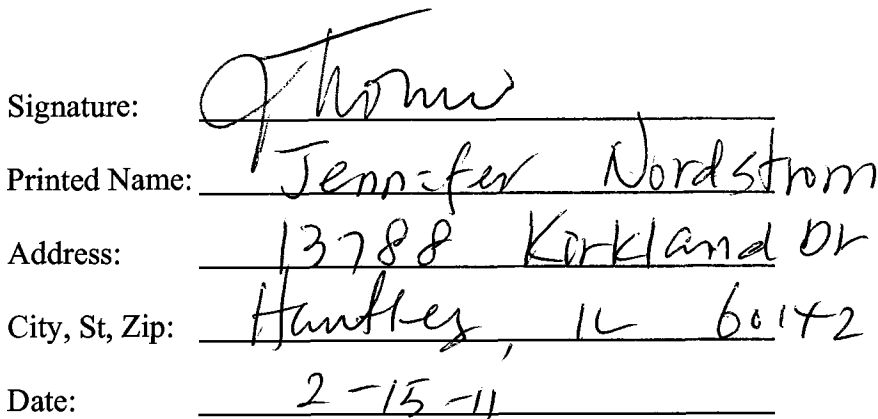 Signature:
Printed Name: Jennifer Nordstrom
Address: 13788 Kirkland Dr
City, St, Zip: Huntley, IL 60142
Date: 2-15-11